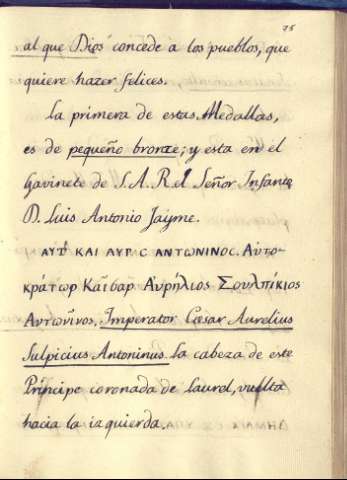 25
al que Dios concede à los pueblos, que
quiere hazer felices.
La primera de estas Medallas,
es de pequeño bronze; y esta en el
Gavinete de S. A. R. el Señor Infante
D. Luis Antonio Jayme.
ΑΥΤ ΚΑΙ ΑΥΡ C ΑΝΤΩΝΙΝΟC. Αὐτο-
κράτωρ Καῖσαρ Αὐρήλιος Σουλπίκιος
Αντωνῖνος. Imperator Cæsar Aurelius
Sulpicius Antoninus. La cabeza de este
Principe coronada de Laurel, vuelta
hacia la izquierda.